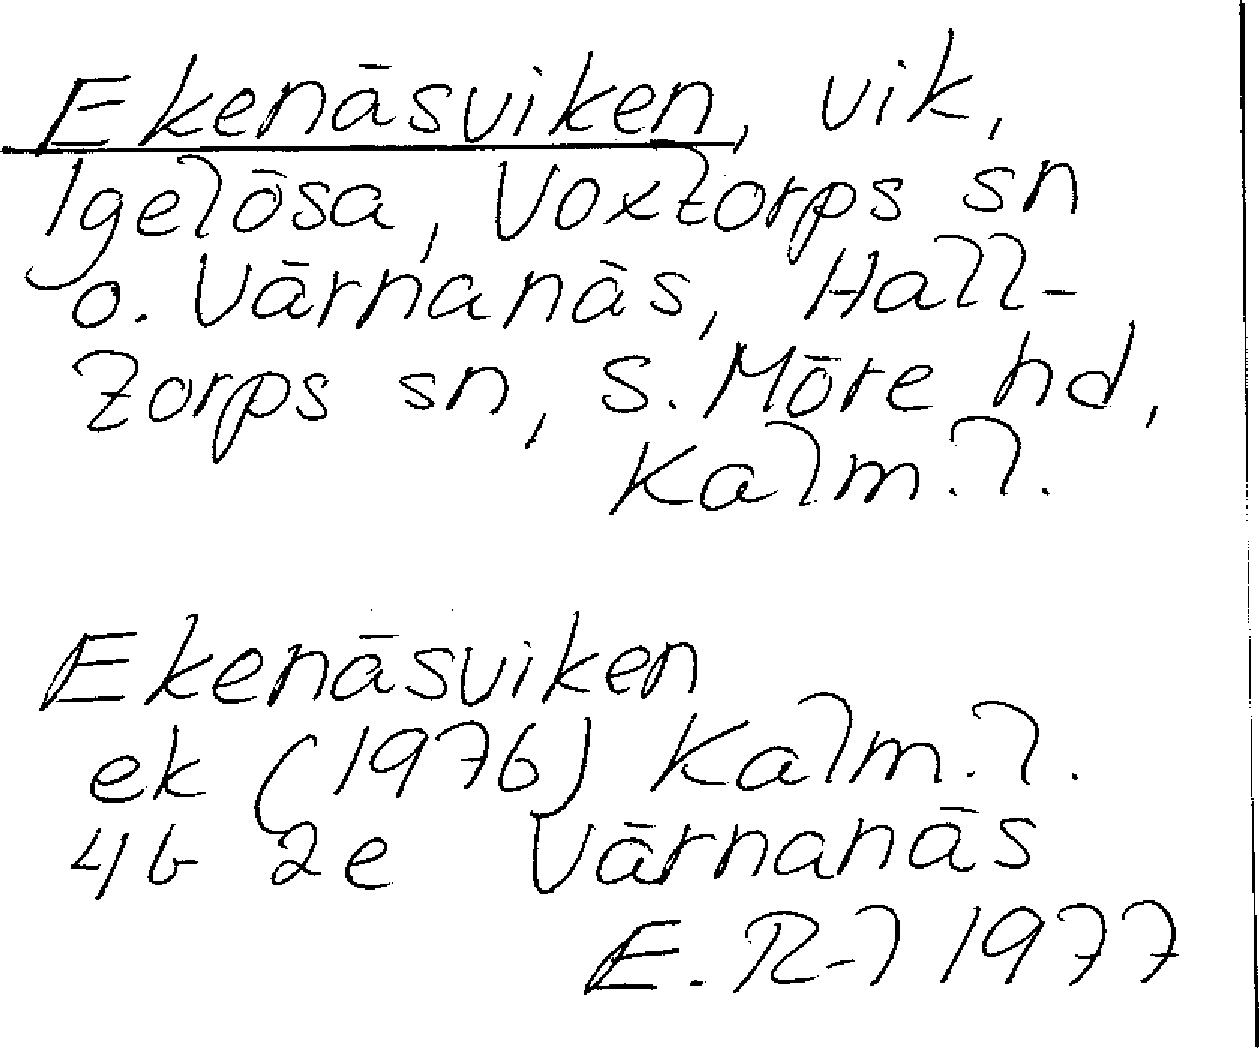 Ekenäsviken, vik,
Igelösa, Voxtorps sn
o. Värnanäs, Hall-
torps sn, S. Möre hd,
Kalm. l.
Ekenäsviken
ek (1976) Kalm. l.
4G 2e Värnanäs
E. R-l 1977